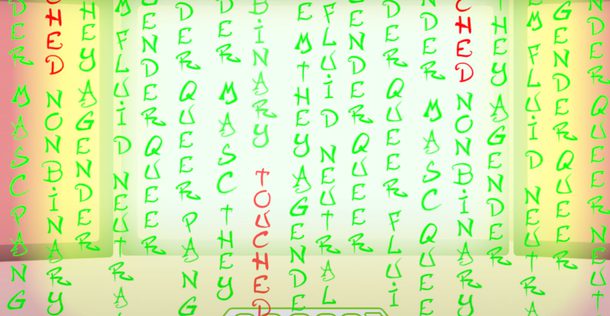 DER MASC PANG
CHED NONBINARY
HEY AGENDER
M FLUID NEUTRA
ENDER QUEER
DER QUEER PANG
DER MASC THEY
BINARY TOUCHED
EM THEY AGENDE
FLUID NEUTRAL
ENDER QUEER
DER QUEER FLUI
DER MASC QUEE
CHED NONBINARY
THEY AGENDER
EM FLUID NEUTRA
GENDER QUEER
FLUID NEUT